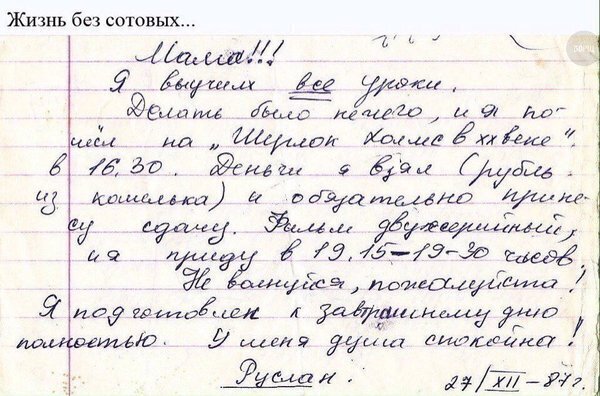 Жизнь без сотовых...
Мама!!!
Я выучил все уроки.
Делать было нечего, и я по-
шёл на „Шерлок Холмс в XX веке"
в 16.30. Деньги я взял (рубль
из кошелька) и обязательно прине-
су сдачу. Фильм двухсерийный,
и я приду в 19.15-19-30 часов
Не волнуйся, пожалуйста!
Я подготовлен к завтрашнему дню
полностью. У меня душа спокойна!
Руслан.
27/XII-87г.